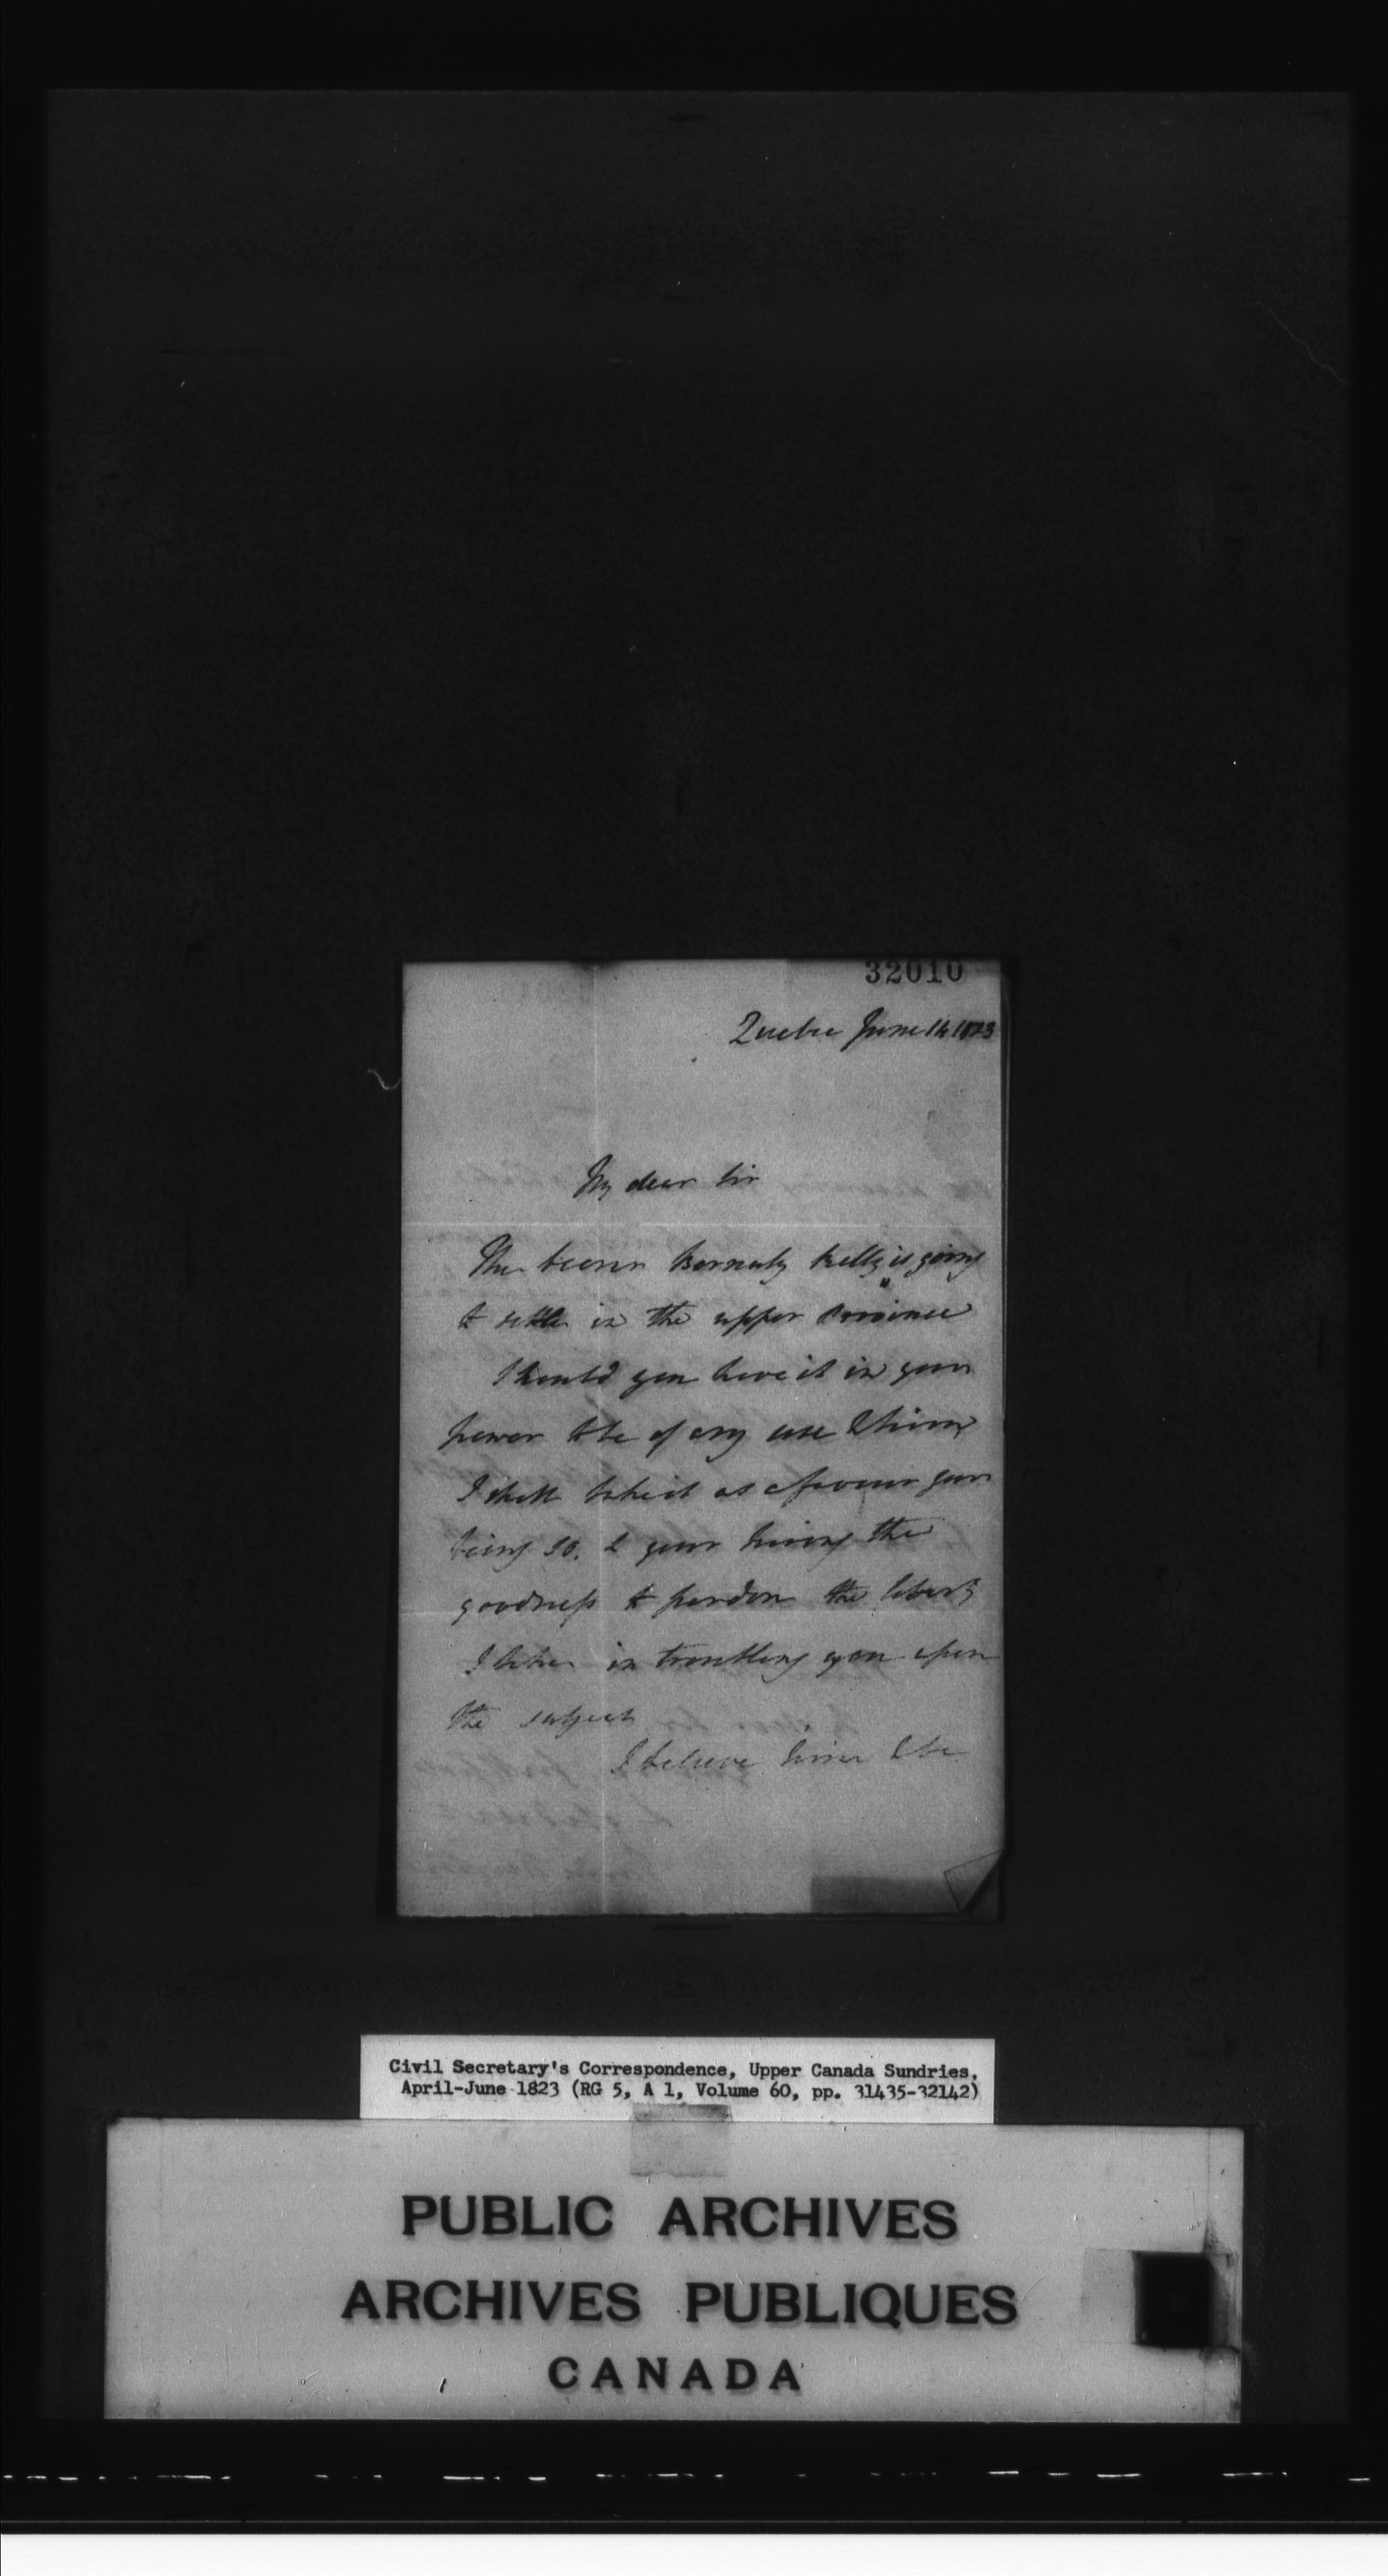 32010
Quebec June 14 1823
My dear Sir
The bearer Barnaby Kelly is going
to settle in the upper Province
Should you have it in your
power to be of any use to him
I shall take it as a favour your
being so. & your having the
goodness to pardon the liberty
I take in troubling you upon
the subject
I believe him to be
Civil Secretary's Correspondence, Upper Canada Sundries,
April-June 1823 (RG 5, A 1, Volume 60, pp. 31435-32142)
PUBLIC ARCHIVES
ARCHIVES PUBLIQUES
CANADA